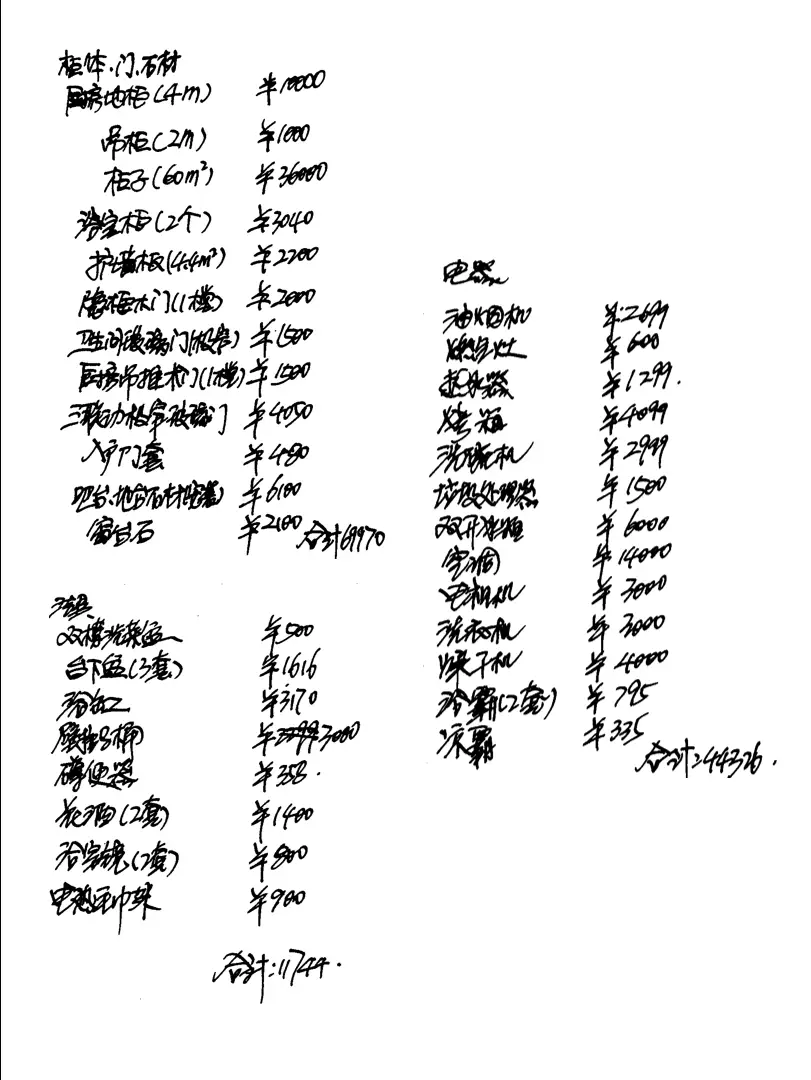 柜体、门、石材
厨房地柜(4m) ¥10000
吊柜(2m) ¥1000
柜子(60m²) ¥36000
浴室柜(2个) ¥3040
护墙板(4.4m²) ¥2200
隐框木门(1樘) ¥2000
卫生间玻璃门(极窄) ¥1500
厨房吊推木门(1樘) ¥1500
三联动极窄玻璃门 ¥4050
入户门套 ¥480
吧台、地台石材(安装) ¥6100
窗台石 ¥2100
合计69970
洁具
双槽洗菜盆 ¥500
台下盆(3套) ¥1616
浴缸 ¥3170
壁挂马桶 ¥3000
蹲便器 ¥358.
花洒(2套) ¥1400
浴室镜(2套) ¥800
电热毛巾架 ¥900
合计:11744.
电器
油烟机 ¥:2699
燃气灶 ¥600
热水器 ¥1299.
烤箱 ¥4099
洗碗机 ¥2999
垃圾处理器 ¥1500
双开冰箱 ¥6000
空调 ¥14000
电视机 ¥3000
洗衣机 ¥3000
烘干机 ¥4000
浴霸(2套) ¥795
凉霸 ¥335
合计:44326.